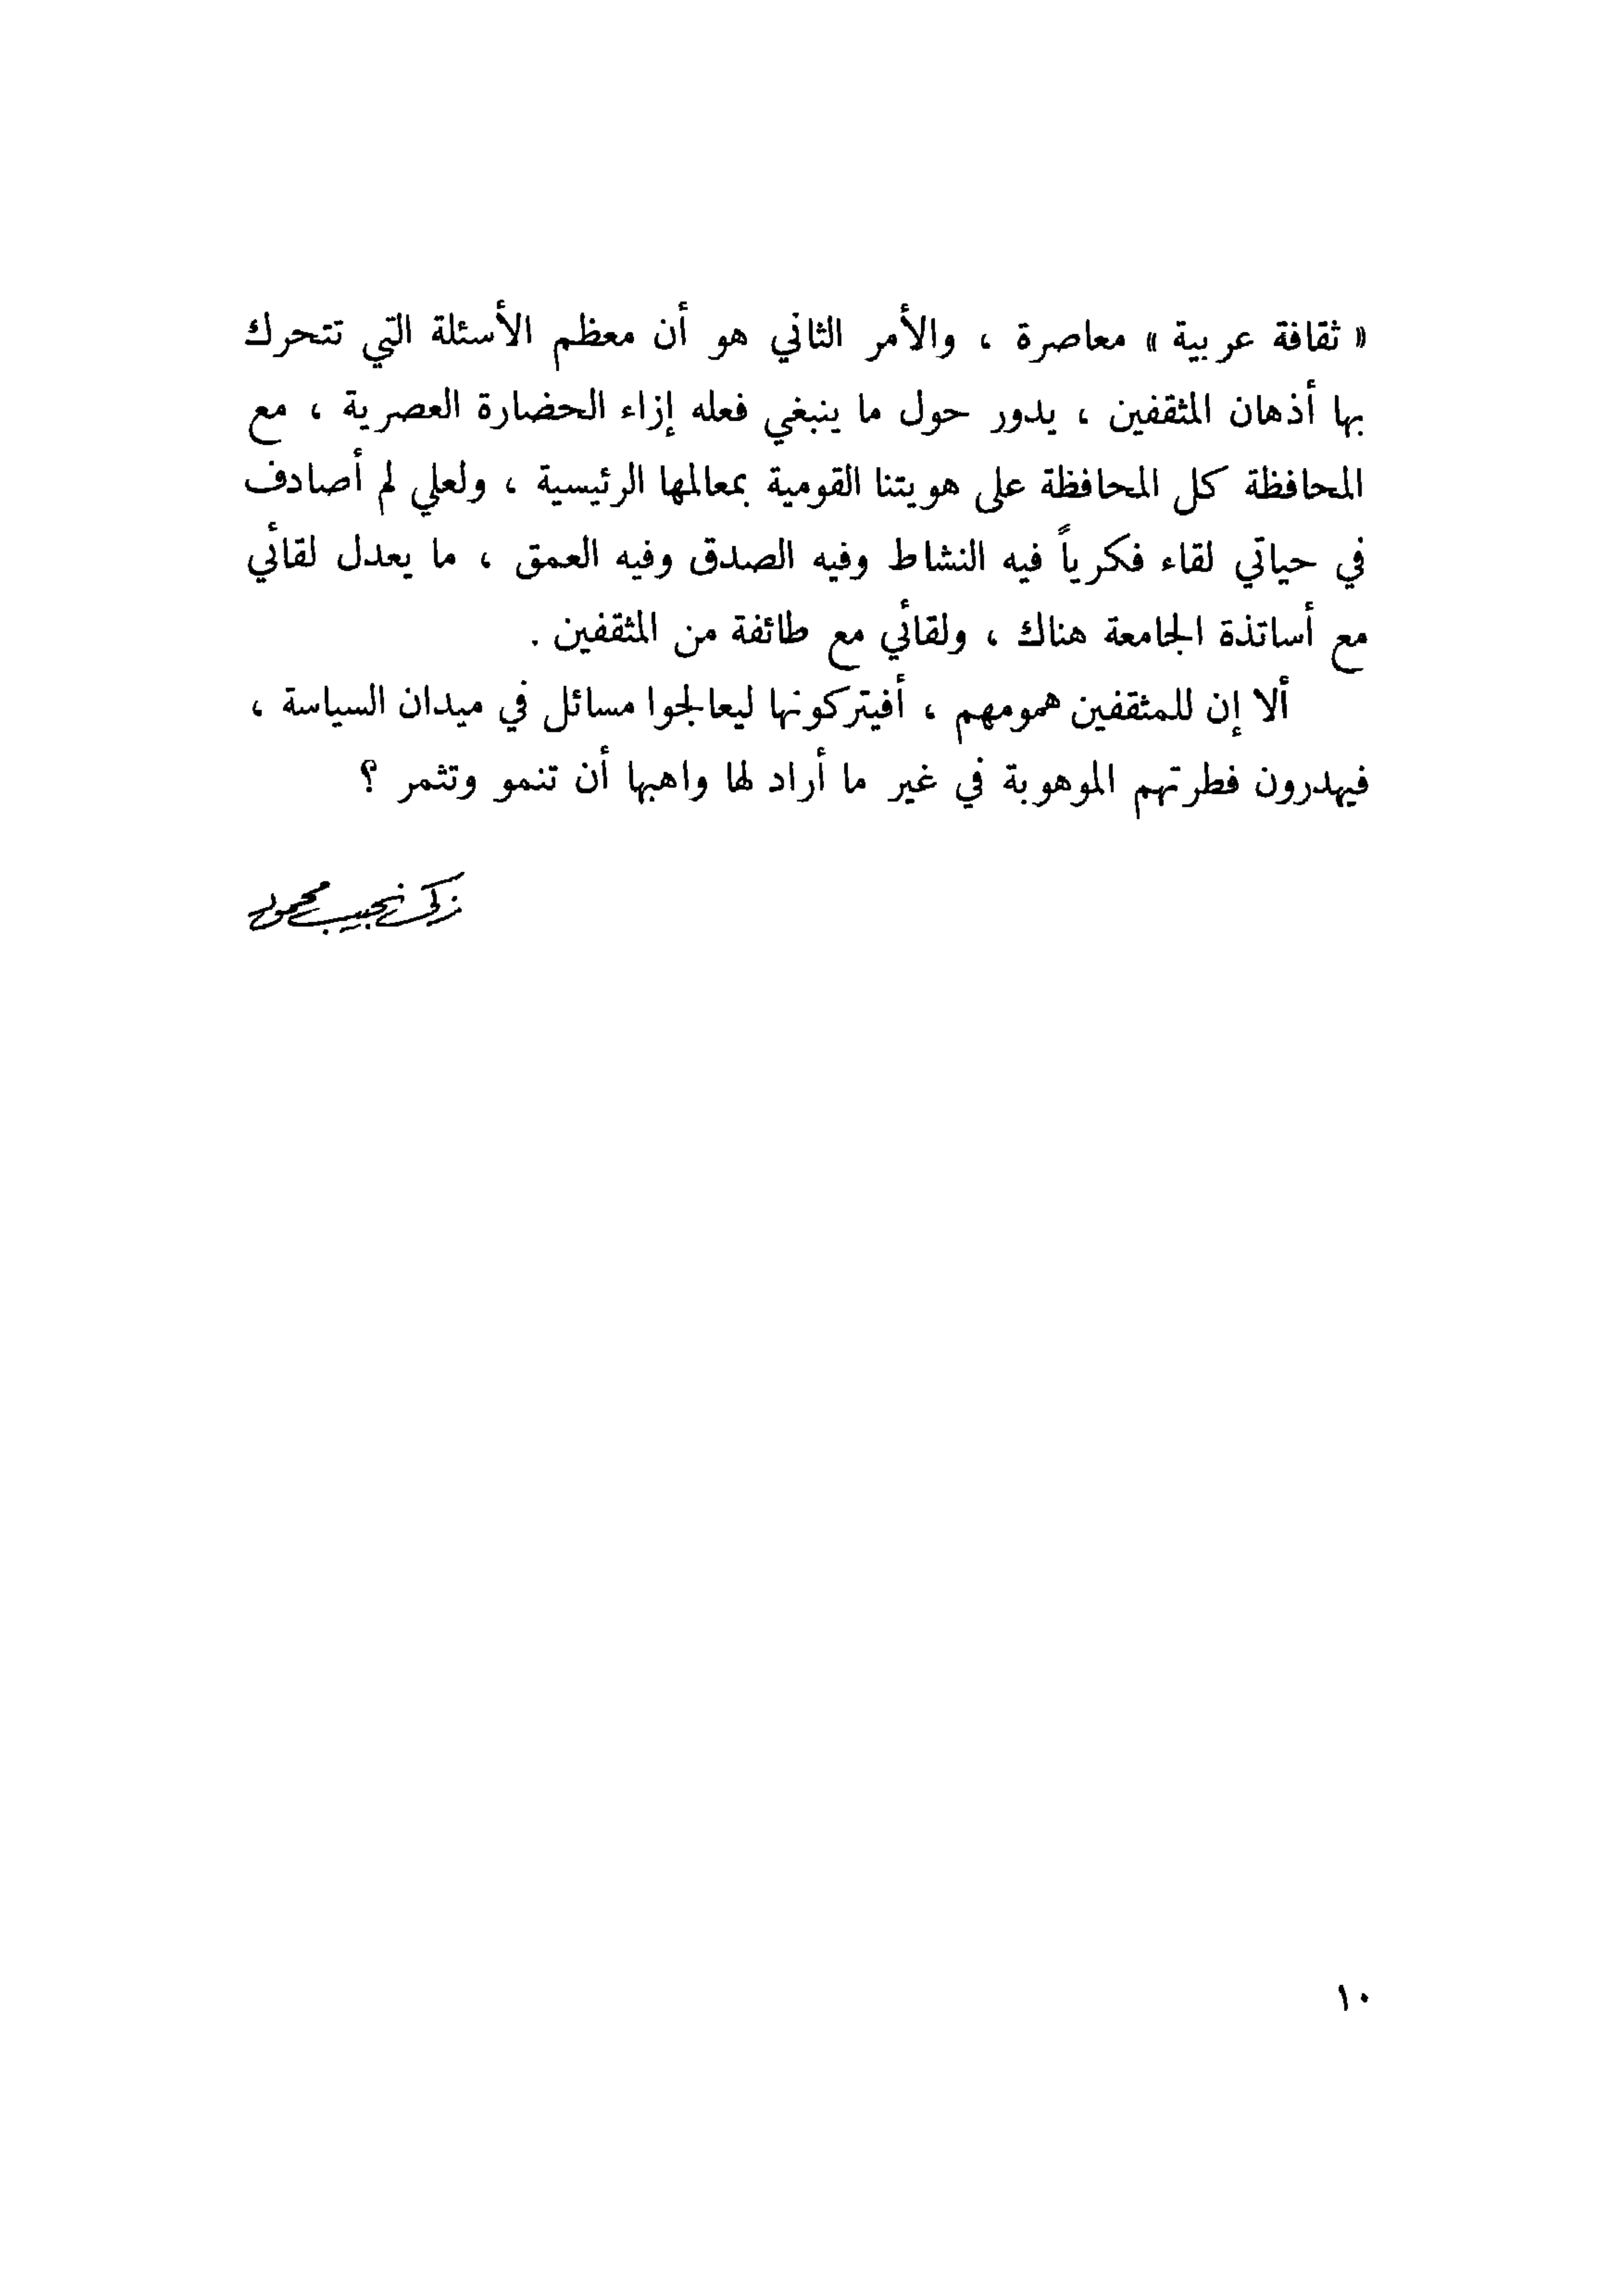 « ثقافة عربية » معاصرة ، والأمر الثاني هو أن معظم الأسئلة التي تتحرك
بها أذهان المثقفين ، يدور حول ما ينبغي فعله إزاء الحضارة العصرية ، مع
المحافظة كل المحافظة على هويتنا القومية بمعالمها الرئيسية ، ولعلي لم أصادف
في حياتي لقاء فكرياً فيه النشاط وفيه الصدق وفيه العمق ، ما يعدل لقائي
مع أساتذة الجامعة هناك ، ولقائي مع طائفة من المثقفين .
ألا إن للمثقفين همومهم ، أفيتركونها ليعالجوا مسائل في ميدان السياسة ،
فيهدرون فطرتهم الموهوبة في غير ما أراد لها واهبها أن تنمو وتثمر ؟
زكي نجيب محمود
١٠